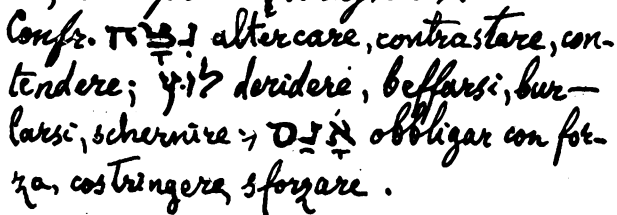 Confr. נִצָּה altercare, contrastare, con-
tendere; לוּץ deridere, beffarsi, bur-
larsi, schernire; אָנַס obbligar con for-
za, costringere, sforzare.